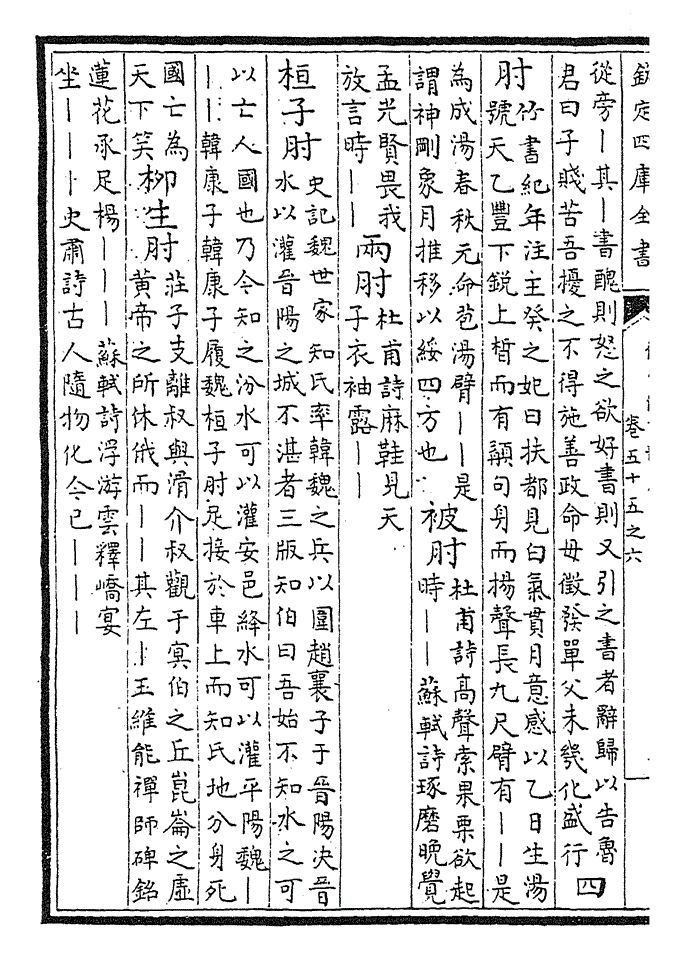 欽定四庫全書
卷五十五之六
從旁｜其｜書醜則怒之欲好書則又引之書者辭歸以告魯
君曰子賤苦吾擾之不得施善政命毋徵發單父未幾化盛行
四
肘
竹書紀年注主癸之妃曰扶都見白氣貫月意感以乙日生湯
號天乙豐下銳上皙而有句身而揚聲長九尺臂有｜｜是
為成湯春秋元命苞湯臂｜｜是
謂神剛象月推移以綏四方也
被肘
杜甫詩高聲索果栗欲起
時｜｜蘇軾詩琢磨晚覺
孟光賢畏我
放言時｜｜
兩肘
杜甫詩麻鞋見天
子衣袖露｜｜
桓子肘
史記魏世家知氏率韓魏之兵以圍趙襄子于晉陽決晉
水以灌晉陽之城不湛者三版知伯曰吾始不知水之可
以亡人國也乃今知之汾水可以灌安邑絳水可以灌平陽魏｜
｜｜韓康子韓康子履魏桓子肘足接於車上而知氏地分身死
國亡為
天下笑
柳生肘
莊子支離叔與滑介叔觀于冥伯之丘崑崙之虛
黃帝之所休俄而｜｜其左｜王維能禪師碑銘
蓮花承足楊｜｜｜蘇軾詩浮游雲釋嶠宴
坐｜｜｜史肅詩古人隨物化今已｜｜｜